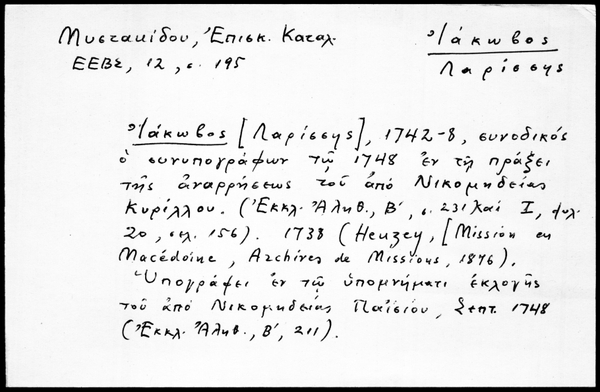 Μυστακίδου, Ἐπισκ. Καταλ.
ΕΕΒΣ, 12, σ. 195
Ἰάκωβος
Λαρίσσης
Ἰάκωβος [Λαρίσσης], 1742-8, συνοδικός
ὁ συνυπογράφων τῷ 1748 ἐν τῇ πράξει
τῆς ἀναρρήσεως τοῦ ἀπό Νικομηδείας
Κυρίλλου. (Ἐκκλ. Ἀληθ., Β', σ. 231 καί Ι, φυλ.
20, σελ. 156). 1738 (Heuzey, [Mission en
Macédoine, Archives de Missions, 1876).
Ὑπογράφει ἐν τῷ ὑπομνήματι ἐκλογῆς
τοῦ ἀπό Νικομηδείας Παϊσίου, Σεπτ. 1748
(Ἐκκλ. Ἀληθ., Β', 211).